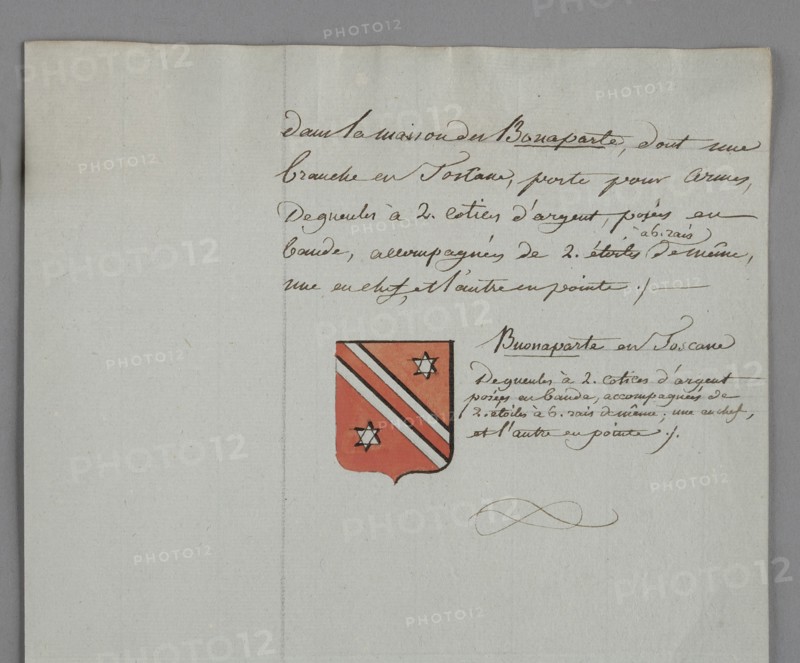 Dans la maison des Bonaparte, dont une
branche en Toscane, porte pour armes,
De gueules à 2. cotices d'argent, posées en
à 6. rais
bande, accompagnées de 2. étoiles de même,
une en chef, et l'autre en pointe ./.
Buonaparte en Toscane
De gueules à 2. cotices d'argent
posées en bande, accompagnées de
2. étoiles à 6. rais de même; une en chef,
et l'autre en pointe ./.
PHOTO12